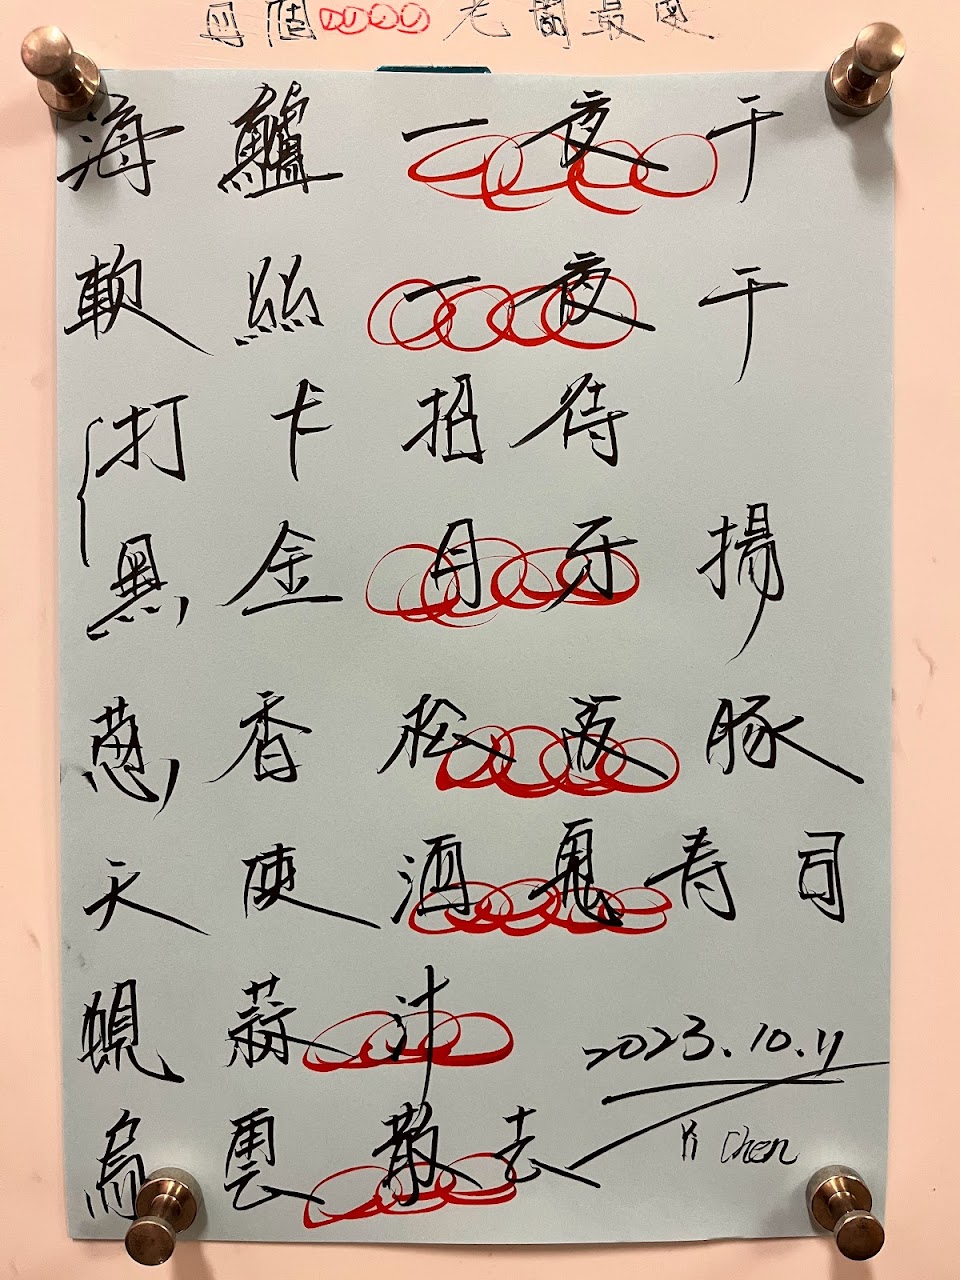 每個 老闆最
海鱸一夜干
軟絲一夜干
打卡招待
黑金月牙揚
蔥香松阪豚
天使酒鬼寿司
蜆蒜汁
2023.10.11
烏雲散去
Yi Chen